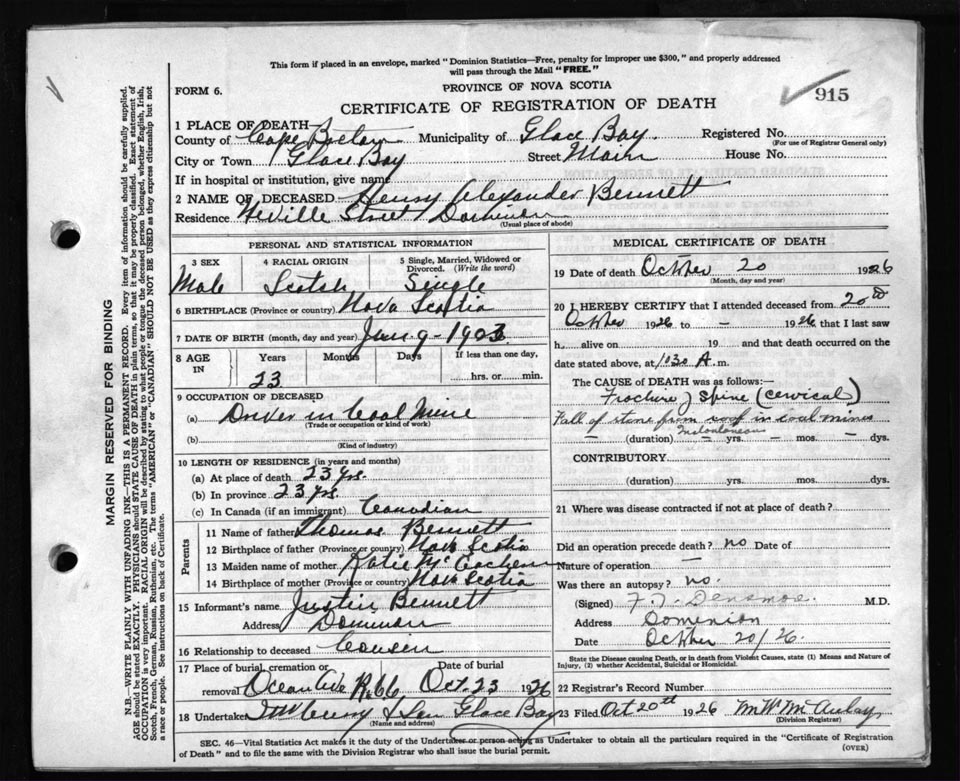 This form if placed in an envelope, marked "Dominion Statistics—Free, penalty for improper use $300," and properly addressed
will pass through the Mail "FREE."
FORM 6.
PROVINCE OF NOVA SCOTIA
CERTIFICATE OF REGISTRATION OF DEATH
915
1 PLACE OF DEATH
County of Cape Breton Municipality of Glace Bay Registered No.
(For use of Registrar General only)
City or Town Glace Bay Street Main House No.
If in hospital or institution, give name
2 NAME OF DECEASED Henry Alexander Bennett
Residence Neville Street Dominion
(Usual place of abode)
PERSONAL AND STATISTICAL INFORMATION
3 SEX 4 RACIAL ORIGIN 5 Single, Married, Widowed or Divorced. (Write the word)
Male Scotch Single
6 BIRTHPLACE (Province or country) Nova Scotia
7 DATE OF BIRTH (month, day and year) Jan 9 - 1903
8 AGE IN Years Months Days If less than one day,
23 hrs. or min.
9 OCCUPATION OF DECEASED
(a) Driver in Coal Mine
(Trade or occupation or kind of work)
(b)
(Kind of industry)
10 LENGTH OF RESIDENCE (in years and months)
(a) At place of death 23 yrs.
(b) In province 23 yrs.
(c) In Canada (if an immigrant) Canadian
Parents
11 Name of father Thomas Bennett
12 Birthplace of father (Province or country) Nova Scotia
13 Maiden name of mother Katie McEachern
14 Birthplace of mother (Province or country) Nova Scotia
15 Informant's name Justin Bennett
Address Dominion
16 Relationship to deceased Cousin
17 Place of burial, cremation or removal Date of burial
Ocean Ave R.66 Oct 23 1926
18 Undertaker Glace Bay
(Name and address)
MEDICAL CERTIFICATE OF DEATH
19 Date of death October 20 1926
(Month, day and year)
20 I HEREBY CERTIFY that I attended deceased from 20th
October 1926 to – 1926 that I last saw
h alive on 19 and that death occurred on the
date stated above, at 1:30 A. m.
The CAUSE of DEATH was as follows:—
Fracture of Spine (cervical)
Fall of stone from roof in coal mines
Instantaneous
– (duration) – yrs. – mos. – dys.
CONTRIBUTORY
(duration) yrs. mos. dys.
21 Where was disease contracted if not at place of death?
Did an operation precede death? no Date of
Nature of operation –
Was there an autopsy? no.
(Signed) F. J. Densmoe. M.D.
Address Dominion
Date October 20/26.
State the Disease causing Death, or in death from Violent Causes, state (1) Means and Nature of
Injury, (2) whether Accidental, Suicidal or Homicidal.
22 Registrar's Record Number
23 Filed Oct 20th 1926 M W McAulay
(Division Registrar)
SEC. 46—Vital Statistics Act makes it the duty of the Undertaker or person acting as Undertaker to obtain all the particulars required in the "Certificate of Registration
of Death" and to file the same with the Division Registrar who shall issue the burial permit.
(OVER)
MARGIN RESERVED FOR BINDING
N.B.—WRITE PLAINLY WITH UNFADING INK—THIS IS A PERMANENT RECORD. Every item of information should be carefully supplied.
AGE should be stated EXACTLY. PHYSICIANS should STATE CAUSE OF DEATH in plain terms, so that it may be properly classified. Exact statement of
OCCUPATION is very important. RACIAL ORIGIN will be described by stating to what people or tongue the deceased person belonged, whether English, Irish,
Scotch, French, German, Russian, Ruthenian, etc. The terms "AMERICAN" or "CANADIAN" SHOULD NOT BE USED as they express citizenship but not
a race or people. See instructions on back of Certificate.